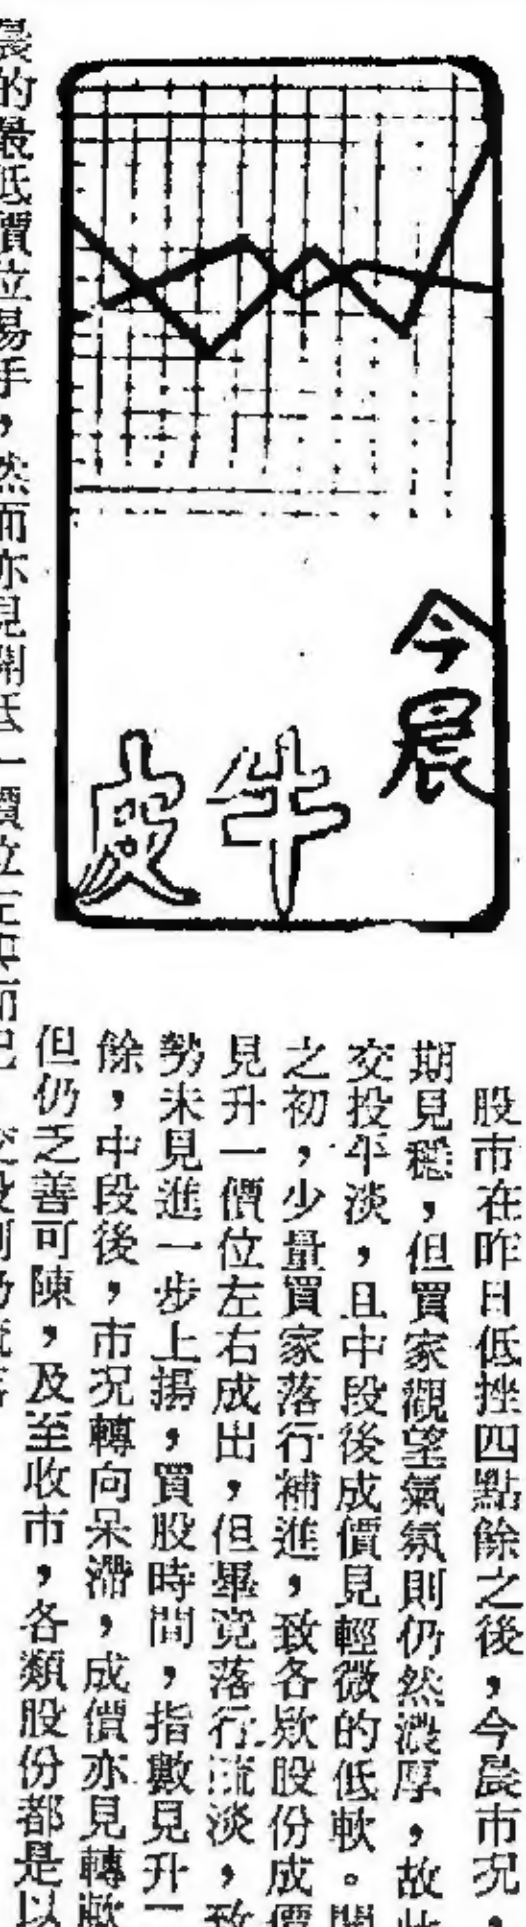 今晨
牛皮
股市在昨日低挫四點餘之後，今晨市況，
期見穩，但買家觀望氣氛則仍然濃厚，故此
交投平淡，且中段後成價見輕微的低軟。開
之初，少量買家落行補進，致各欵股份成價
見升一價位左右成出，但畢竟落行疏淡，致
勢未見進一步上揚，買股時間，指數見升一
餘，中段後，市況轉向呆滯，成價亦見轉歉
但仍乏善可陳，及至收市，各類股份都是以
晨的最低價位易手，然而亦見開低一價位左